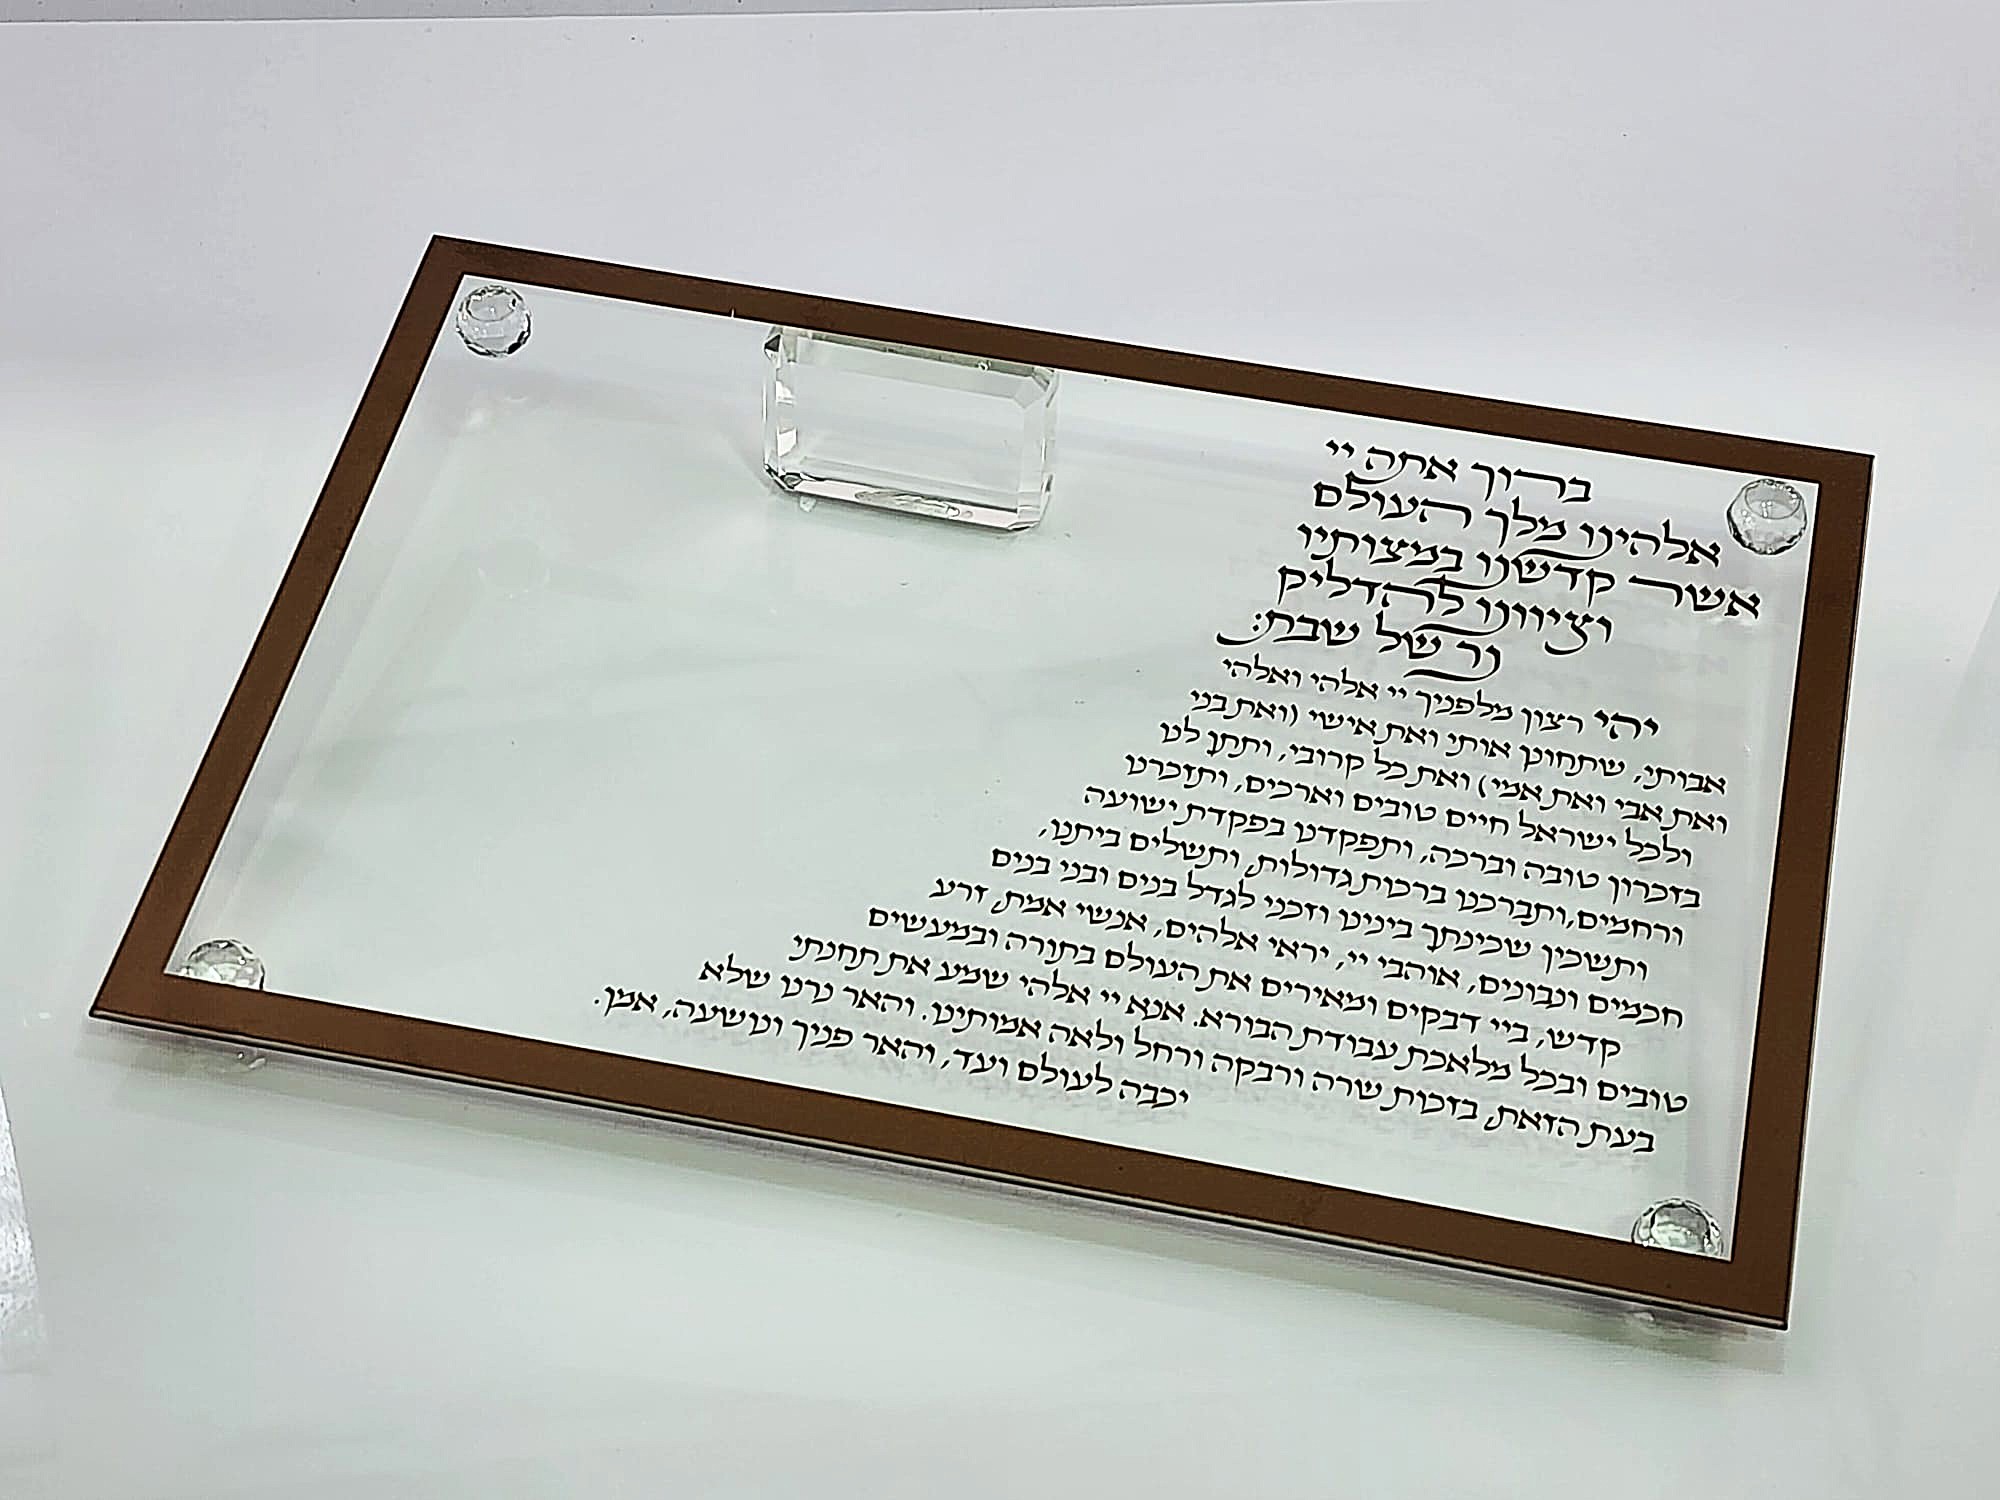 ברוך אתה יי
אלהינו מלך העולם
אשר קדשנו במצותיו
וציוונו להדליק
נר של שבת:
יהי רצון מלפניך יי אלהי ואלהי
אבותי, שתחונן אותי ואת אישי (ואת בני
ואת אבי ואת אמי) ואת כל קרובי, ותתן לנו
ולכל ישראל חיים טובים וארכים, ותזכרנו
בזכרון טובה וברכה, ותפקדנו בפקדת ישועה
ורחמים, ותברכנו ברכות גדולות, ותשלים ביתנו,
ותשכין שכינתך בינינו וזכני לגדל בנים ובני בנים
חכמים ונבונים, אוהבי יי, יראי אלהים, אנשי אמת, זרע
קדש, ביי דבקים ומאירים את העולם בתורה ובמעשים
טובים ובכל מלאכת עבודת הבורא. אנא יי אלהי שמע את תחנתי
בעת הזאת, בזכות שרה ורבקה ורחל ולאה אמותינו. והאר נרנו שלא
יכבה לעולם ועד, והאר פניך ונושעה, אמן.